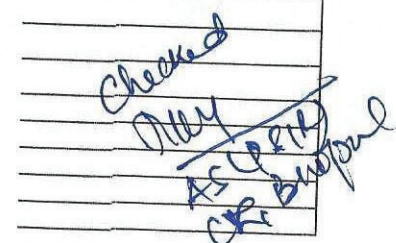 Checked
AS(P&IR)
CR. Bhopal